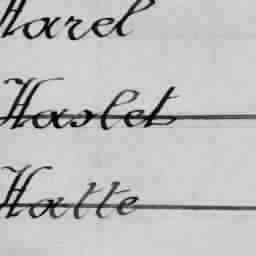 Harel
Haslet
Hatte